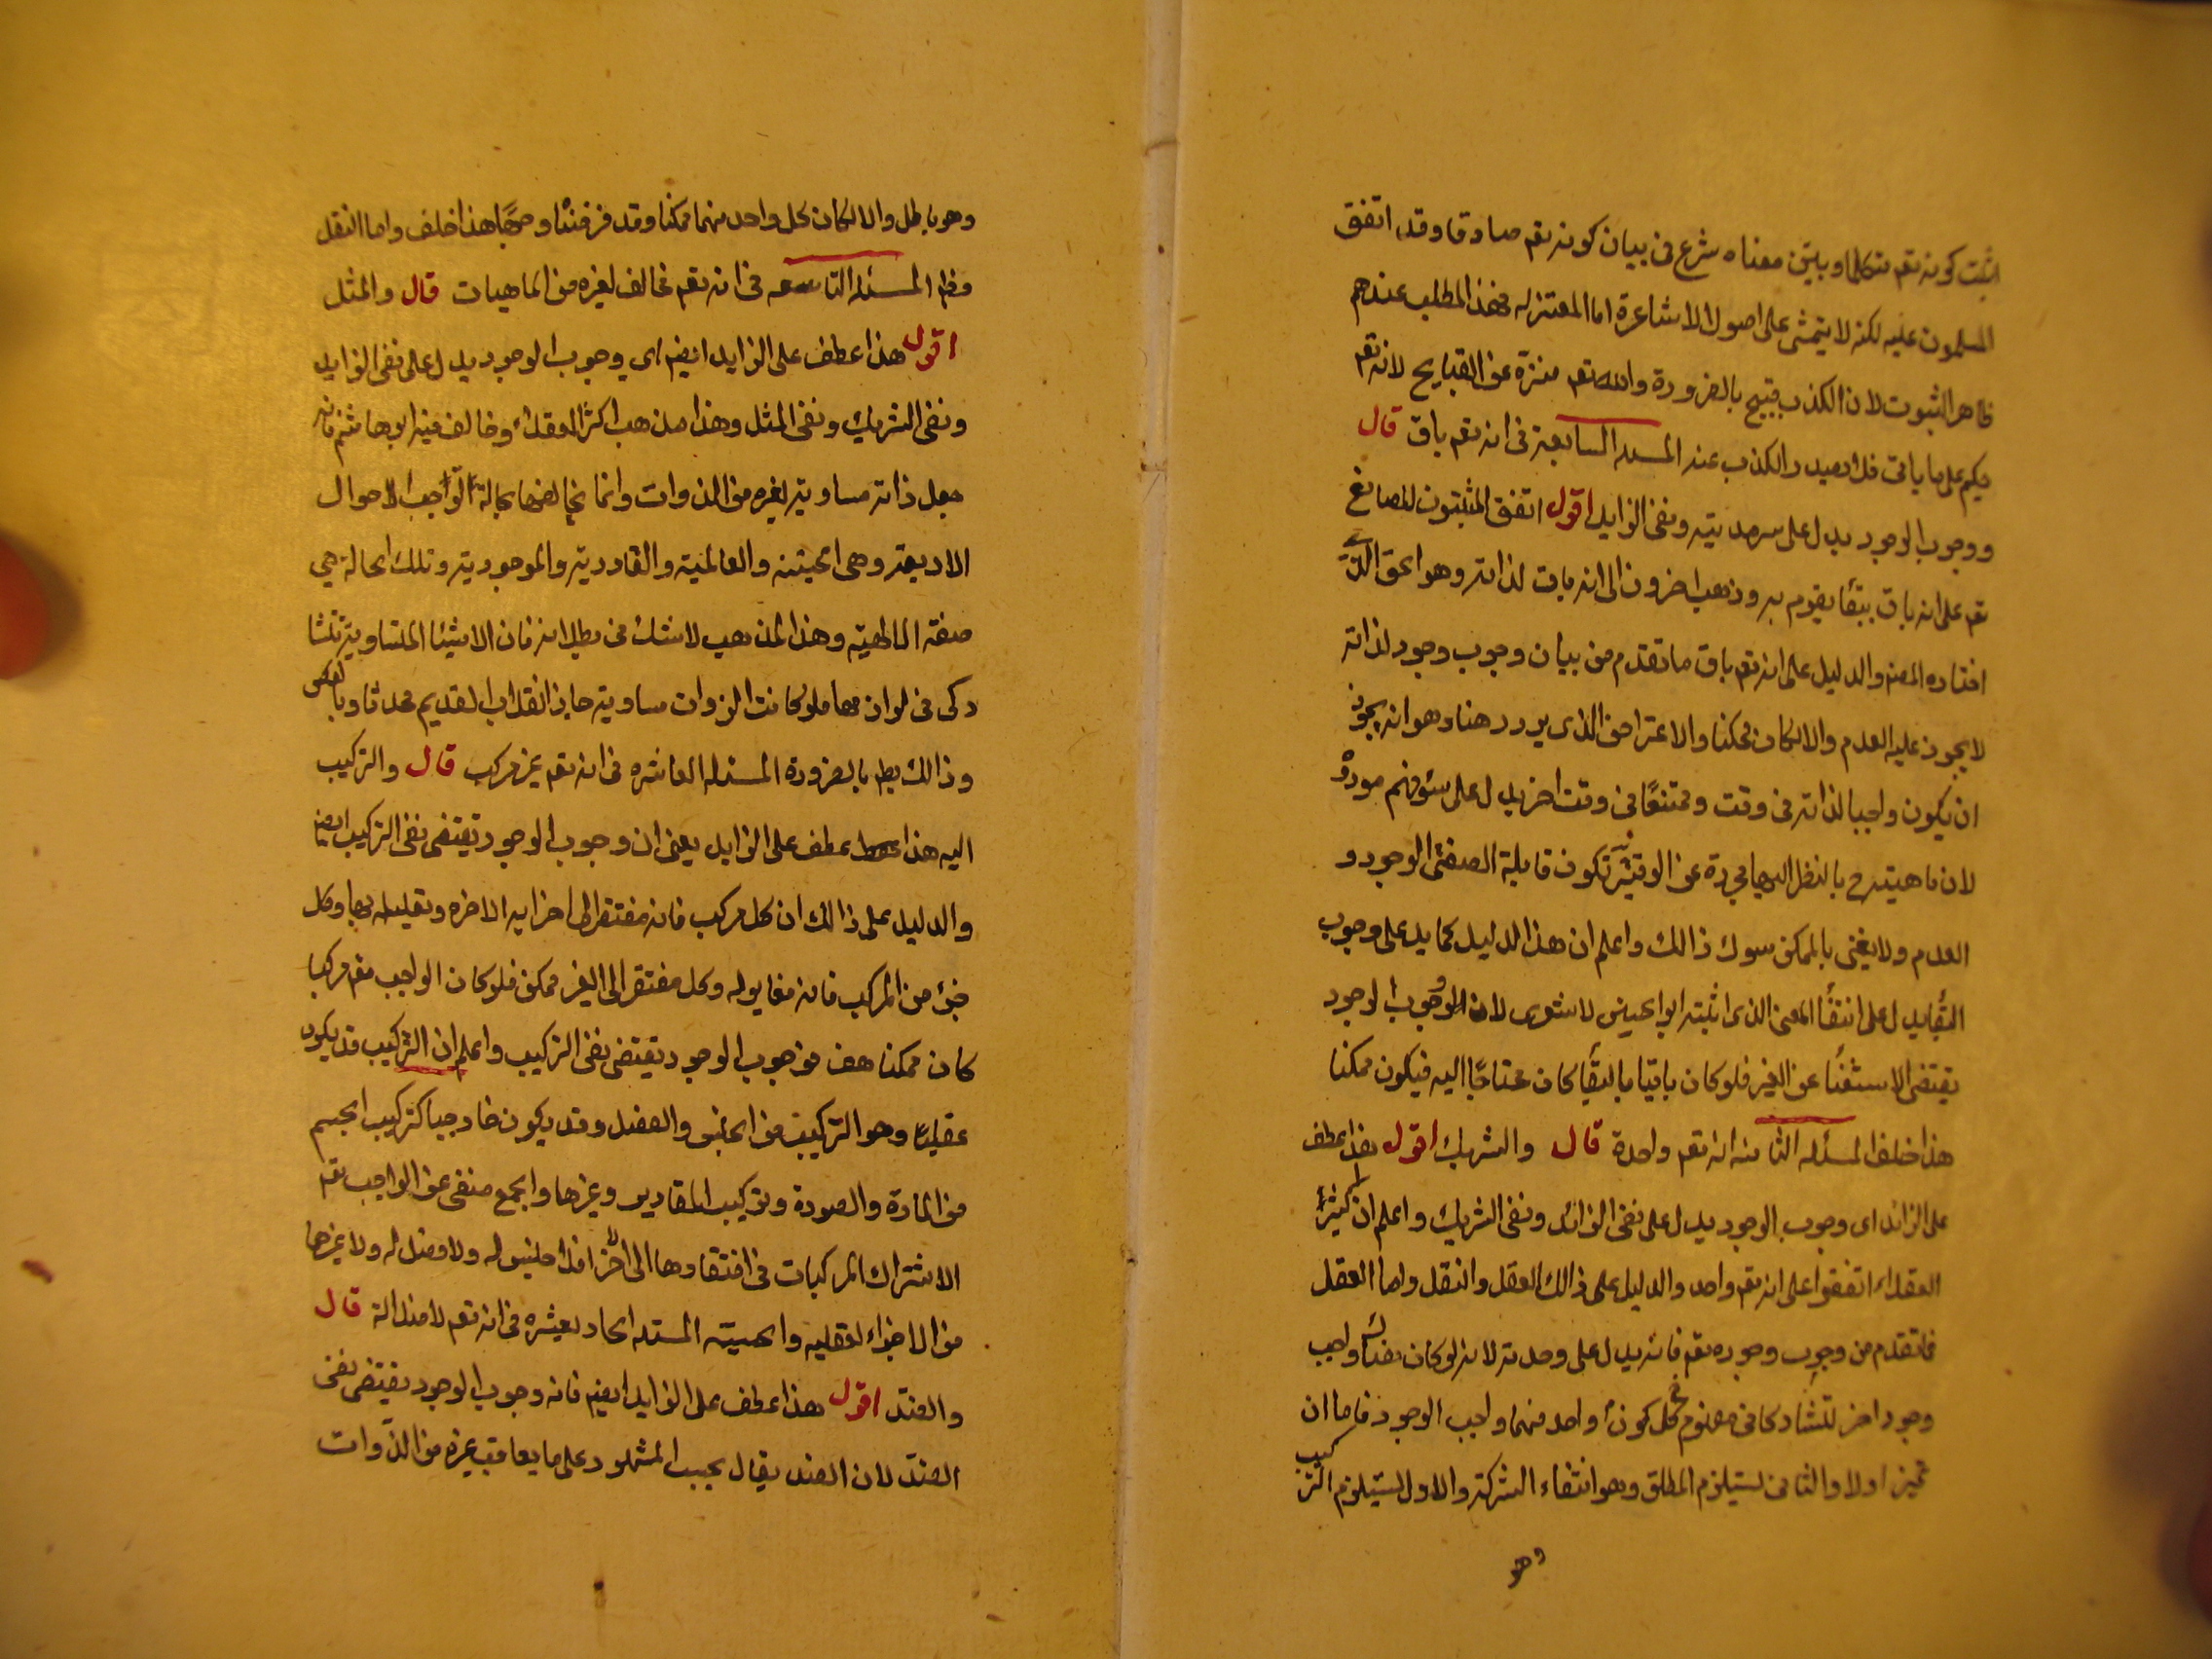 اثبت كونه تعم متكلما وبين معناه شرع فى بيان كونه تعم صادقا وقد اتفق
المسلمون عليه لكنه لا يتمشى على اصول الاشاعرة اما المعتزله فهذا المطلب عندهم
ظاهر الثبوت لان الكذب قبيح بالضرورة والله تعم منزه عن القبايح لانه تعم
المسئله السابعة فى انه تعم باق قال
ووجوب الوجود يدل على سرمديته ونفى الزايد اقول اتفق المثبتون للصانع
تعم على انه باق ببقأ يقوم به وذهب اخرون الى انه باق لذاته وهو الحق الذى
اختاره المصنم والدليل على انه تعم باق ما تقدم من بيان وجوب وجود لذاته
لا يجوز عليه العدم والا لكان ممكنا والاعتراض الذى يورد هنا وهو انه يجوز
ان يكون واجبا لذاته فى وقت وممتنعًا فى وقت اخر يدل على سوء فهم مورده
لان ماهيته ح بالنظر اليها مجردة عن الوقتين تكون قابلة لصفتى الوجود و
العدم ولا يغنى بالممكن سوى ذالك واعلم ان هذا الدليل كما يدل على وجوب
البقأ يدل على انتفأ المعنى الذى اثبته ابو الحسن الاشعرى لان الوجوب الوجود
يقتضى الاستغنأ عن الغير فلو كان باقيا بالبقأ كان محتاجًا اليه فيكون ممكنا
هذا خلف المسئله الثامنه انه تعم واحدة قال والشريك اقول هذا عطف
على الزائد اى وجوب الوجود يدل على نفى الزائد ونفى الشريك واعلم ان اكثر
العقلاء اتفقوا على انه تعم واحد والدليل على ذالك العقل والنقل واما العقل
فما تقدم من وجوب وجوده تعم فانه يدل على وحدته لانه لو كان هناك واجب
وجود اخر لتشاركا فى مفهوم كون كل واحد منهما واجب الوجود فاما ان
تميز اولا والثانى يستلزم المطلق وهو انتفاء الشركة والاول يستلزم التركيب
وهو
وهو باطل والا لكان كل واحد منهما ممكنا وقد فرضنا وجبا هذا خلف واما النقل
فظم المسئله التاسعه فى انه تعم مخالف لغيره من الماهيات قال والمثل
اقول هذا عطف على الزايد ايضم اى وجوب الوجود يدل على نفى الزايد
ونفى الشريك ونفى المثل وهذا مذهب اكثر العقلاء وخالف فيه ابو هاشم فانه
جعل ذاته مساوية لغيره من الذوات وانما يخالفها بحالة تواجب الاحوال
الاربعة وهى الحيتيه والعالمية والقادرية والموجودية وتلك الحالة هى
صفة الالهية وهذا المذهب لا شك فى بطلانه فان الاشيئا المتساوية تتشا
ركى فى لوازمها فلو كانت الذوات مساوية جاز انقلاب القديم محدثا وبالعكس
وذالك بطم بالضرورة المسئله العاشره فى انه تعم غير مركب قال والتركيب
اليه هذا عطف على الزايد يعنى ان وجوب الوجود تقتضى نفى التركيب ايضا
والدليل على ذالك ان كل مركب فانه مفتقر الى اجزايه لاخره وتعليله بها وكل
جزء من المركب فانه مغاير له وكل مفتقر الى الغير ممكن فلو كان الواجب تعم مركبا
كان ممكنا هف فوجوب الوجود تقتضى نفى التركيب واعلم ان التركيب قد يكون
عقليًا وهو التركيب من الجنس والفصل وقد يكون خارجيا كتركيب الجسم
من المادة والصورة وتركيب المقادير وغيرها والجمع منفى عن الواجب تعم
الاشتراك المركبات فى افتقارها الى الاجزا فلا جنس له ولا فصل له ولا غيرها
من الاجزاء العقليه والحسيته المسئله الحاد يعشره فى انه تعم لا ضد له قال
والضد اقول هذا عطف على الزايد ايضم فانه وجوب الوجود يقتضى نفى
الضد لان الضد يقال بحسب المشهور على ما يعاقب غيره من الذوات